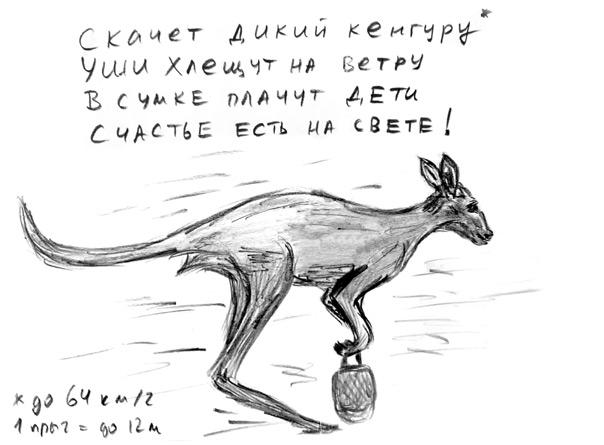 Скачет дикий кенгуру*
Уши хлещут на ветру
В сумке плачут дети
Счастье есть на свете!
* до 64 км/г
1 прыг = до 12 м